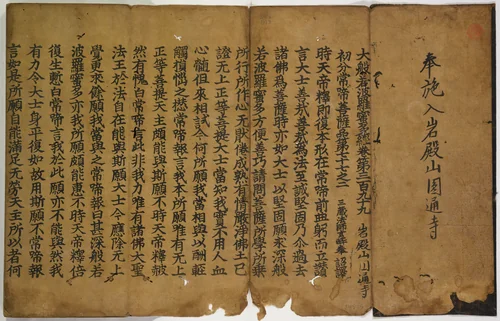 奉施入岩殿山圓通寺
大般若波羅蜜多經卷第三百九十九 岩殿山圓通寺
初分常啼菩薩品第七十七之二 三藏法師玄奘奉 詔譯
時天帝釋即復本形在常啼前曲躬而立讚
言大士善哉善哉為法至誠堅固乃尒過去
諸佛為菩薩時亦如大士以堅固願求深般
若波羅蜜多方便善巧請問菩薩所學所乘
所行所作心无猒倦成熟有情嚴淨佛土已
證无上正等菩提大士當知我實不用人血
心髓但來相試今何所願我當相與以酬輕
觸損惱之愆常啼報言我本所願唯有无上
正等菩提天主頗能與斯願不時天帝釋赧
然有愧白常啼言此非我力唯有諸佛大聖
法王於法自在能與斯願大士今應除无上
覺更求餘願我當與之常啼報曰甚深般若
波羅蜜多亦我所願頗能惠不時天帝釋倍
復生慙白常啼言我於此願亦不能與然我
有力令大士身平復如故用斯願不常啼報
言如是所願自能滿足无勞天主所以者何